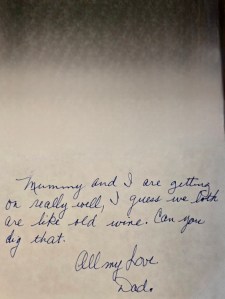 Mummy and I are getting
on really well, I guess we both
are like old wine. Can you
dig that.
All my Love
Dad.